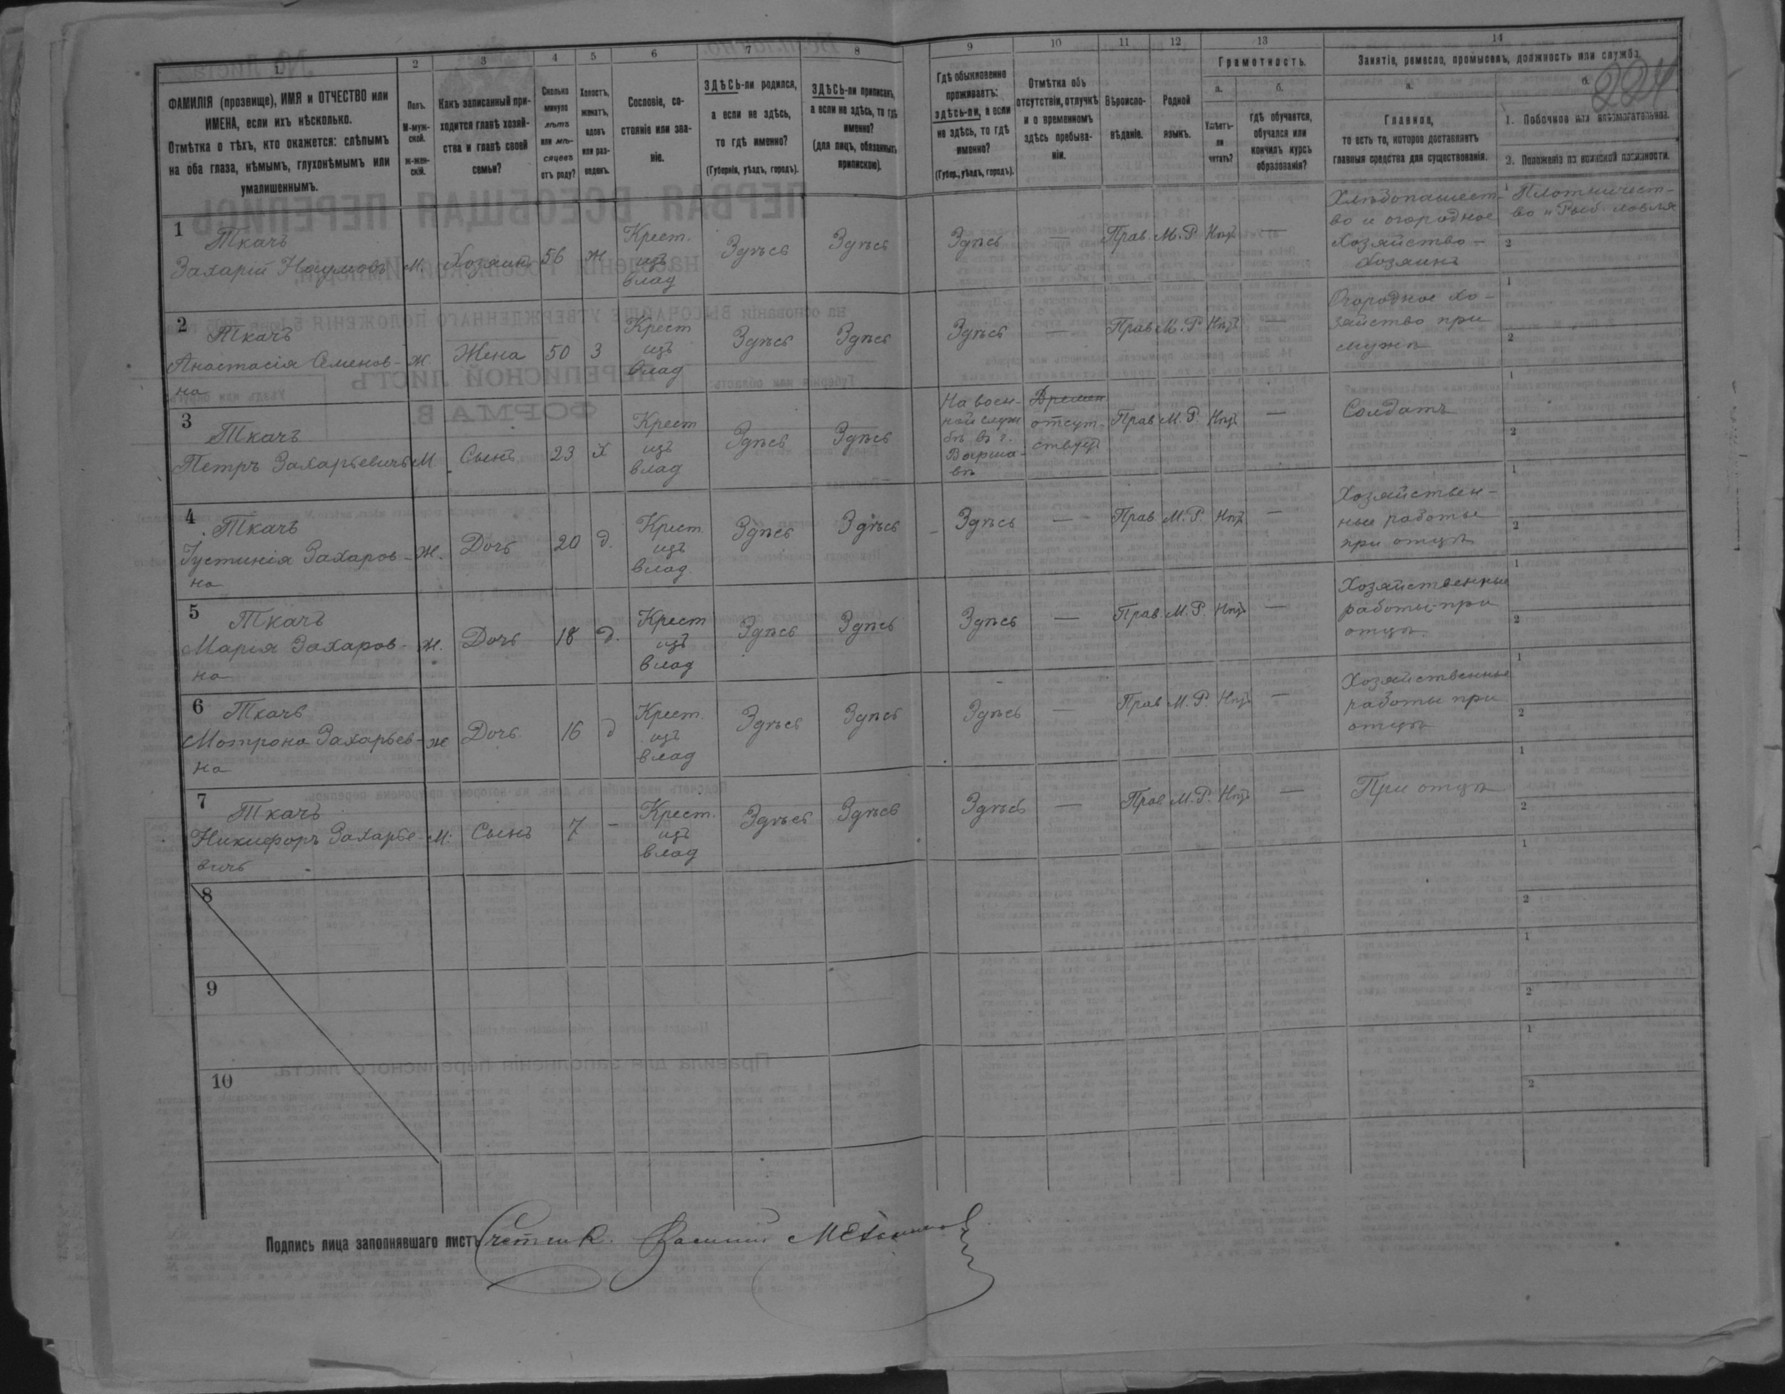 224
1
2
3
4
5
6
7
8
9
10
11
12
13
14
ФАМИЛІЯ (прозвище), ИМЯ и ОТЧЕСТВО или
ИМЕНА, если ихъ нѣсколько.
Отмѣтка о тѣхъ, кто окажется: слѣпымъ
на оба глаза, нѣмымъ, глухонѣмымъ или
умалишеннымъ.
Полъ.
М-муж-
ской.
Ж-жен-
скій.
Какъ записанный при-
ходится главѣ хозяй-
ства и главѣ своей
семьи?
Сколько
минуло
лѣтъ
или мѣ-
сяцевъ
отъ роду?
Холостъ,
женатъ,
вдовъ
или раз-
веденъ.
Сословіе, со-
стояніе или зва-
ніе.
ЗДѢСЬ-ли родился,
а если не здѣсь,
то гдѣ именно?
(Губернія, уѣздъ, городъ).
ЗДѢСЬ-ли приписанъ,
а если не здѣсь, то гдѣ
именно?
(для лицъ, обязанныхъ
припискою).
Гдѣ обыкновенно
проживаетъ:
здѣсь-ли, а если
не здѣсь, то гдѣ
именно?
(Губер., уѣздъ, городъ).
Отмѣтка объ
отсутствіи, отлучкѣ
и о временномъ
здѣсь пребыва-
ніи.
Вѣроиспо-
вѣданіе.
Родной
языкъ.
Грамотность.
а.
Умѣетъ-
ли
читать?
б.
гдѣ обучается,
обучался или
кончилъ курсъ
образованія?
Занятіе, ремесло, промыселъ, должность или служба.
а.
Главное,
то есть то, которое доставляетъ
главныя средства для существованія.
б.
1. Побочное или вспомогательное.
2. Положеніе по воинской повинности.
1 Ткачъ
Захарій Наумовъ М. Хозяинъ 56 Ж Крест. изъ влад Здѣсь Здѣсь Здѣсь — Прав М.Р. Нѣтъ — Хлѣбопашест-
во и огородное
хозяйство -
Хозяинъ
1 Плотничест-
во и Рыб. ловля
2
2 Ткачъ
Анастасія Семенов-
на Ж. Жена 50 З Крест изъ влад Здѣсь Здѣсь Здѣсь — Прав М.Р. Нѣтъ — Огородное хо-
зяйство при
мужѣ
1
2
3 Ткачъ
Петръ Захарьевичъ М Сынъ 23 Х Крест изъ влад Здѣсь Здѣсь На воен-
ной служ
бѣ въ г.
Варша-
вѣ Времен
отсут-
ствует Прав М.Р. Нѣтъ — Солдатъ
1
2
4 Ткачъ
Густинія Захаров-
на Ж. Дочь 20 Д. Крест изъ влад Здѣсь Здѣсь Здѣсь — Прав М.Р. Нѣтъ — Хозяйствен-
ные работы
при отцѣ
1
2
5 Ткачъ
Марія Захаров-
на Ж. Дочь 18 Д. Крест изъ влад Здѣсь Здѣсь Здѣсь — Прав М.Р. Нѣтъ — Хозяйственные
работы при
отцѣ
1
2
6 Ткачъ
Мотрона Захарьев-
на Ж Дочь 16 Д Крест. изъ влад Здѣсь Здѣсь Здѣсь — Прав М.Р. Нѣтъ — Хозяйственные
работы при
отцѣ
1
2
7 Ткачъ
Никифоръ Захарье-
вичъ М. Сынъ 7 — Крест. изъ влад Здѣсь Здѣсь Здѣсь — Прав М.Р. Нѣтъ — При отцѣ
1
2
8
1
2
9
1
2
10
1
2
Подпись лица заполнявшаго листъ Счетчикъ Василий